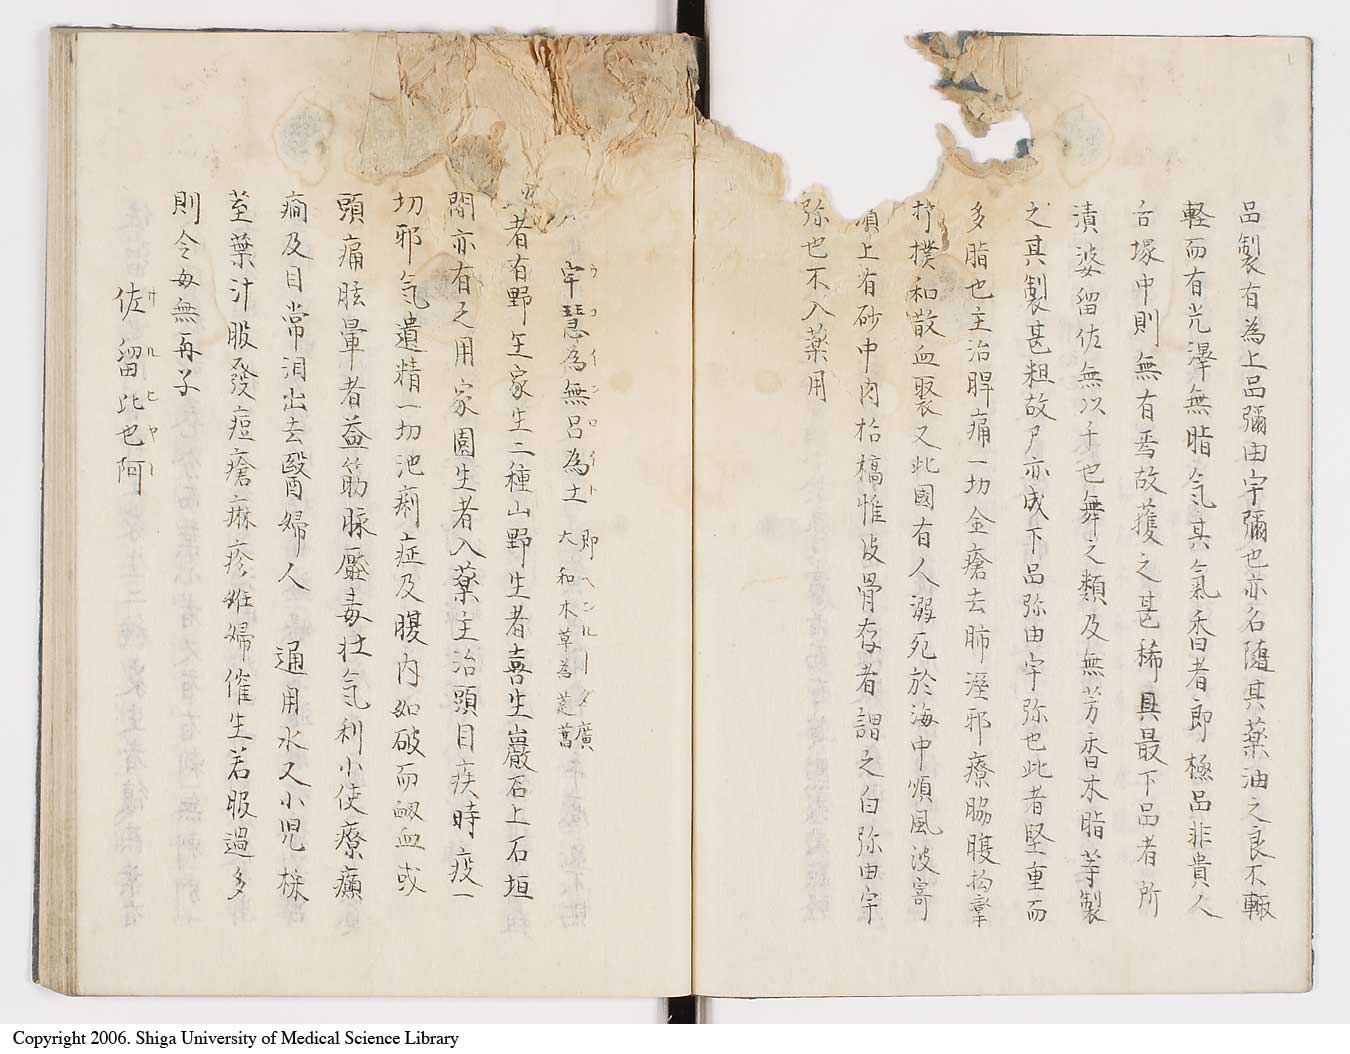 品製有為上品彌由宇彌也亦名随其薬油之良不輙
軽而有光澤無脂气其氣香者即極品非貴人
古塚中則無有焉故獲之甚稀具最下品者所
漬婆留佐無以千也舞之類及無芳香木脂等製
之其製甚粗故尸亦成下品弥由宇弥也此者堅重而
多脂也主治脾痛一切金瘡去肺溼邪療脇腹拘攣
打撲和散血聚又此國有人溺死於海中頌風波寄
須上有砂中肉枯槁惟皮骨存者謂之白弥由宇
弥也不入薬用
宇慧為無呂為土 即ヘンルーダ廣
大和木草為茺蔚
ウコインロイト
者有野生家生二種山野生者喜生巖石上石垣
間亦有之用家園生者入薬主治頭目疾時疫一
切邪气遺精一切池痢症及腹内如破而衂血或
頭痛眩暈者益筋脉壓毒壮气利小使療癲
癇及目常泪出去醫婦人 通用水又小児梂
茎葉汁服發痘瘡麻疹姙婦催生若服過多
則令毎無再子
佐留比也阿
サルヒヤー
Copyright 2006. Shiga University of Medical Science Library